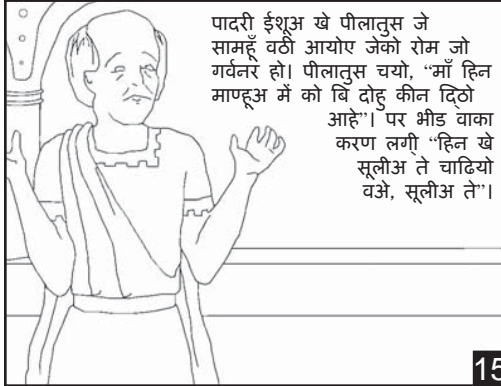 पादरी ईशूअ खे पीलातुस जे
सामहूँ वठी आयोए जेको रोम जो
गर्वनर हो। पीलातुस चयो, “माँ हिन
माण्हूअ में को बि दोहु कीन दि॒ठो
आहे”। पर भीड वाका
करण लगी॒ “हिन खे
सूलीअ ते चाढियो
वञे, सूलीअ ते”।
15